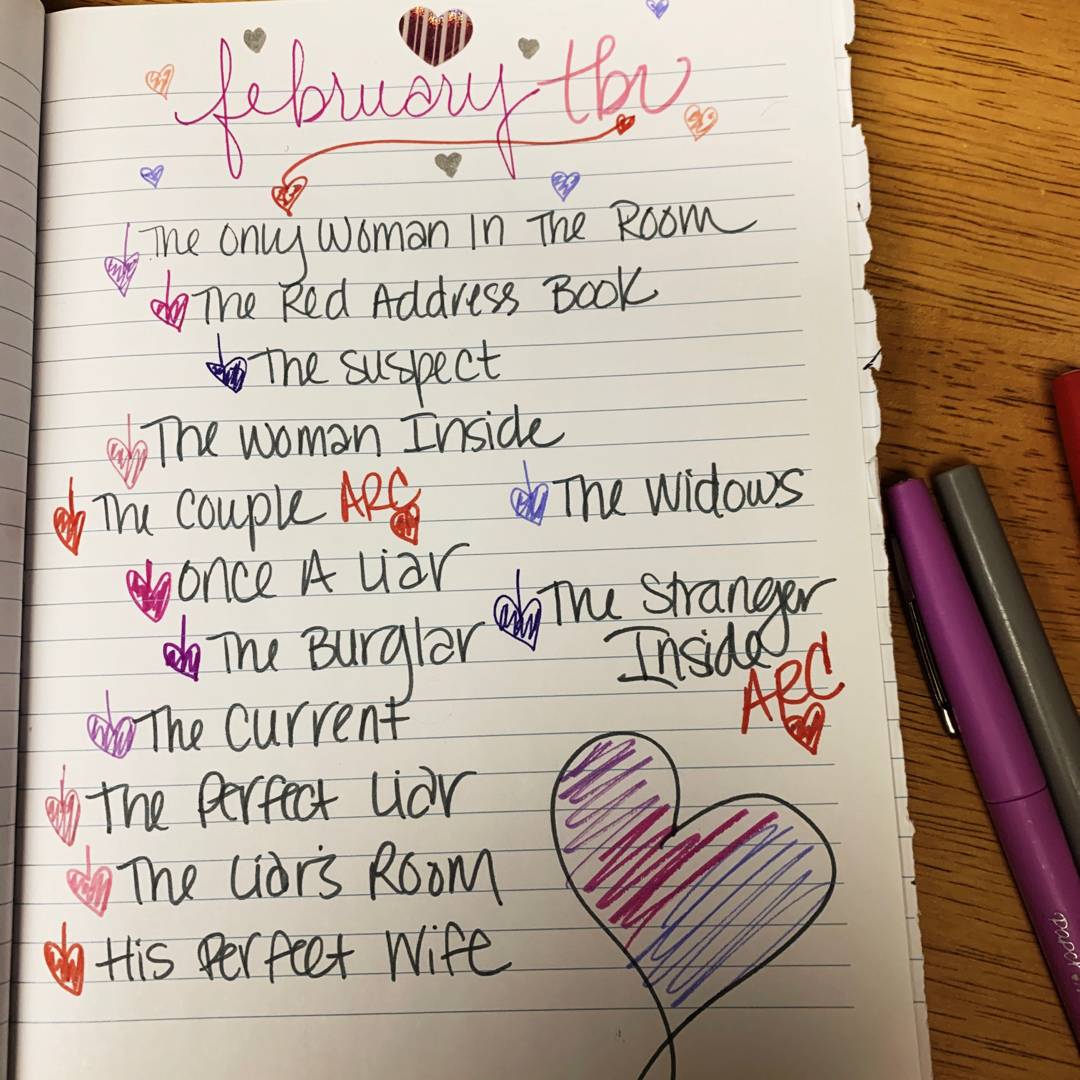 february tbr
The Only Woman In The Room
The Red Address Book
The Suspect
The Woman Inside
The Couple ARC
The Widows
Once A Liar
The Stranger
Inside
ARC
The Burglar
The Current
The Perfect Liar
The Liar's Room
His Perfect Wife